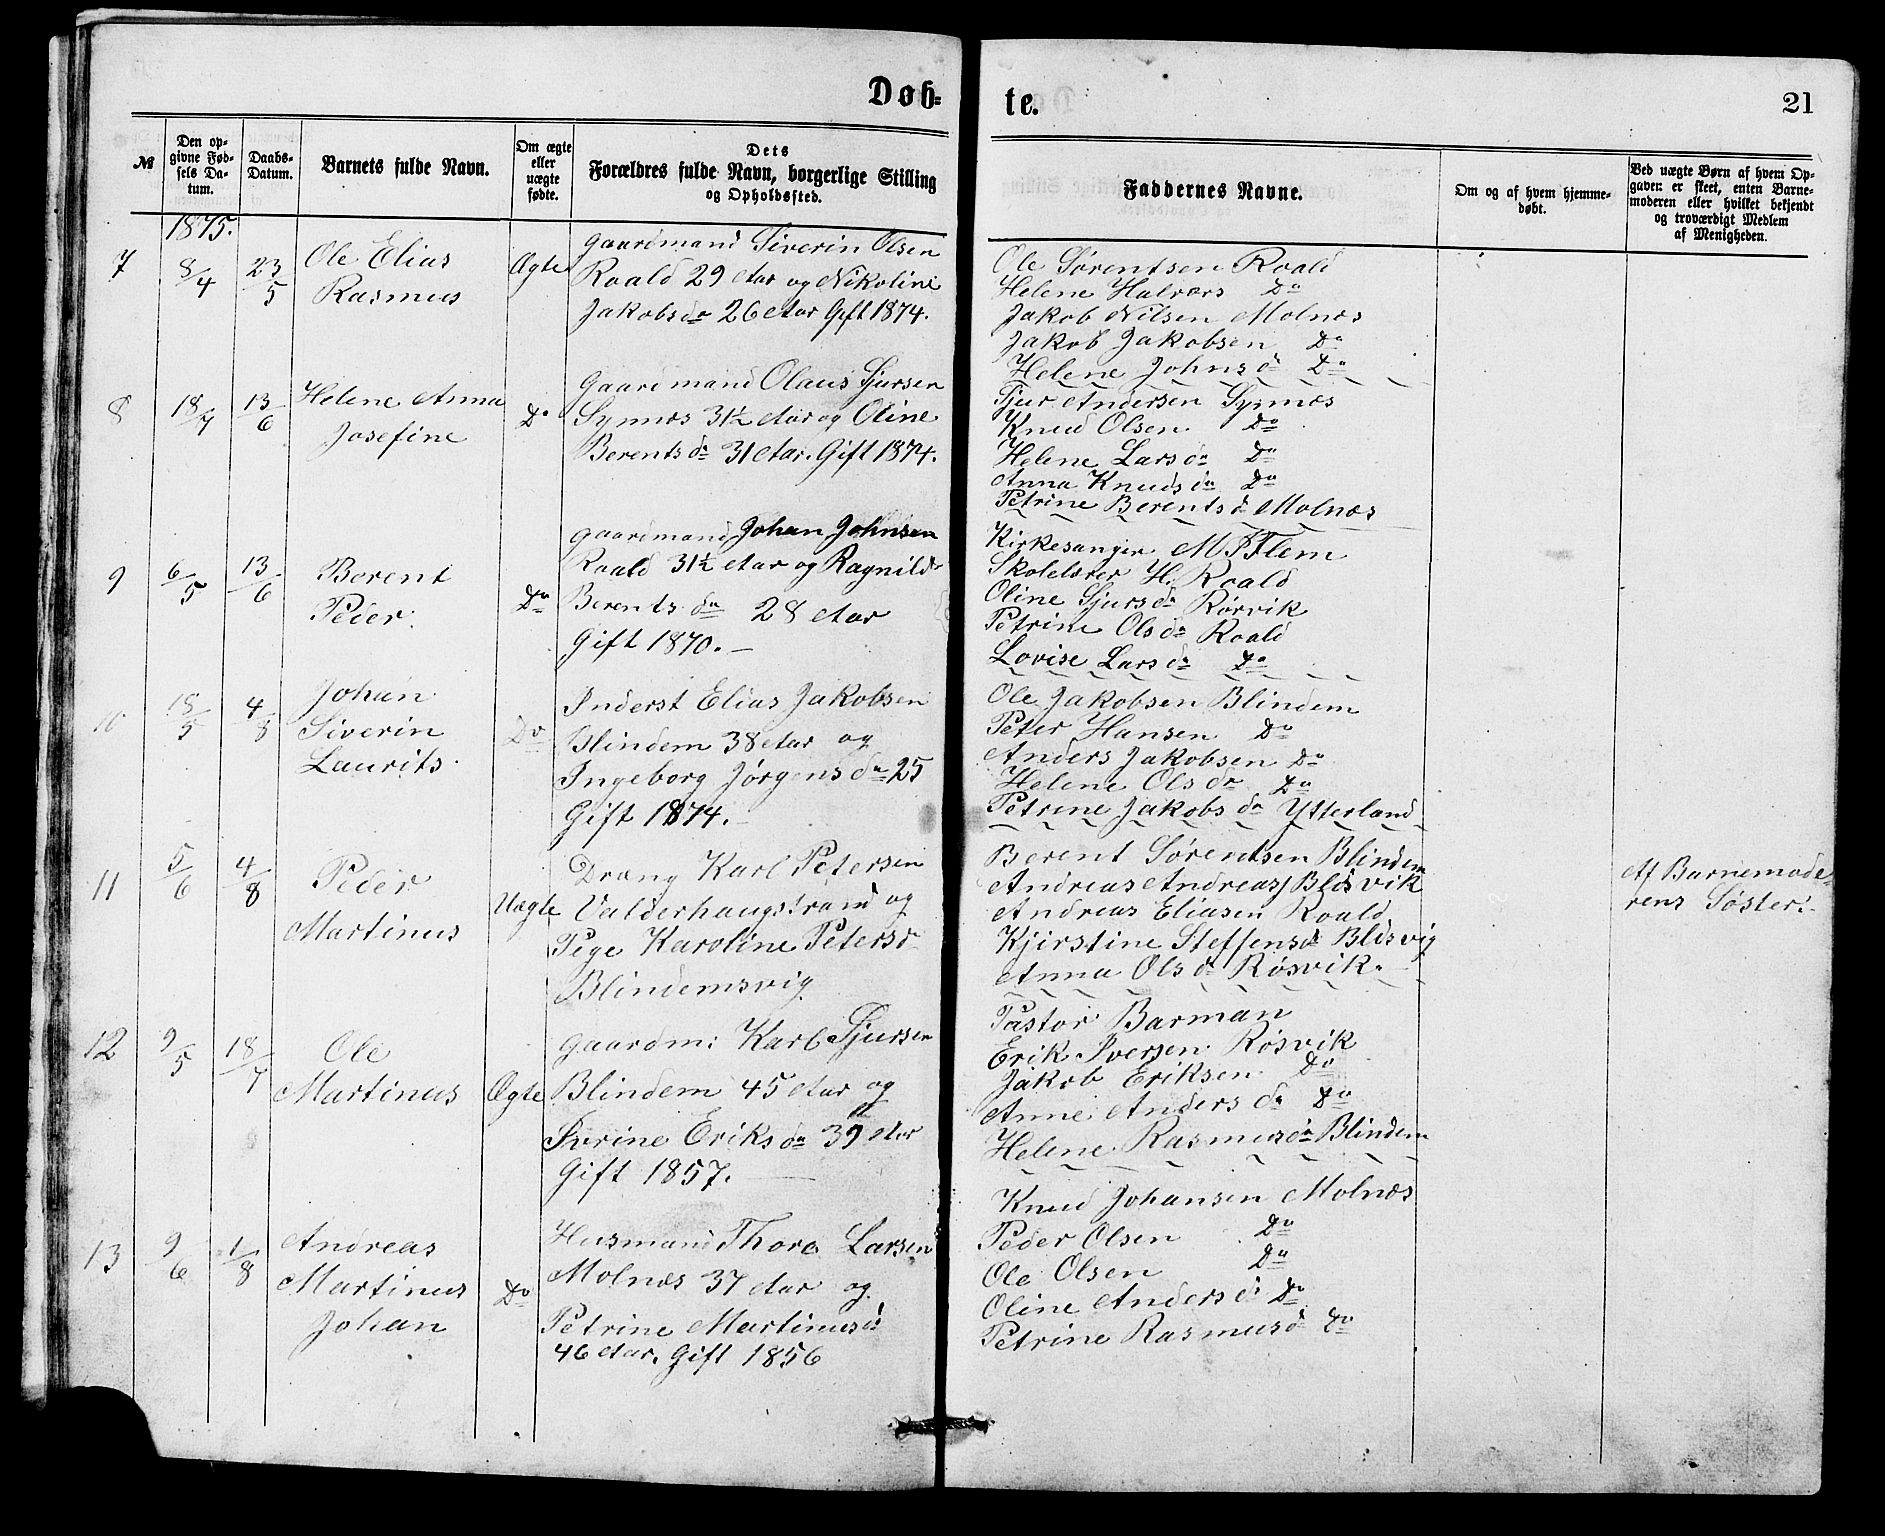 Døb-
te.
21
№
Den op-
givne Fød-
sels Da-
tum.
Daabs-
Datum.
Barnets fulde Navn.
Om ægte
eller
uægte
fødte.
Dets
Forældres fulde Navn, borgerlige Stilling
og Opholdssted.
Faddernes Navne.
Om og af hvem hjemme-
døbt.
Ved uægte Børn af hvem Op-
gaven er skeet, enten Barne-
moderen eller hvilket bekjendt
og troværdigt Medlem
af Menigheden.
1875.
7
8/4
23/5
Ole Elias
Rasmus
Ægte
Gaardmand Siverin Olsen
Roald 29 Aar og Nikoline
Jakobsda 26 Aar Gift 1874.
Ole Sørentsen Roald
Helene Halvors Do
Jakob Nilsen Molnæs
Jakob Jakobsen Do
Helene Johnsd Do
8
18/4
13/6
Helene Anna
Josefine
Do
Gaardmand Olaus Sjursen
Synnes 31½ Aar og Oline
Berentsda 31 Aar. Gift 1874.
Sjur Andersen Synnæs
Knud Olsen Do
Helene Larsda Do
Anna Knudsda Do
Petrine Berentsd Molnæs
9
6/5
13/6
Berent
Peder.
Do
Gaardmand Johan Johnsen
Roald 31½ Aar og Ragnild
Berentsda 28 Aar
Gift 1870.
Kirkesanger M P Flem
Skolelærer H. Roald
Oline Sjursda Rørvik
Petrine Olsda Roald
Lovise Larsda Do
10
18/5
4/8
Johan
Siverin
Laurits.
Do
Inderst Elias Jakobsen
Blindem 38 Aar og
Ingeborg Jørgensda 25
Gift 1874.
Ole Jakobsen Blindem
Peter Hansen Do
Anders Jakobsen Do
Helene Olsda Do
Petrine Jakobsda Ytterland
11
5/6
4/8
Peder
Martinus
Uægte
Dræng Karl Petersen
Valderhaugstrand og
Pige Karoline Petersd
Blindemsvig
Berent Sørentsen Blindem
Andreas Andreas Bldsvik
Andreas Eliasen Roald
Kjirstine Steffensd Bldsvig
Anna Olsd Røsvik.
Af Barnemode-
rens Søster.
12
9/5
18/7
Ole
Martinus
Ægte
Gaardm: Karl Sjursen
Blindem 45 Aar og
Sivrine Eriksda 39 Aar
Gift 1857.
Pastor Barman
Erik Iversen Røsvik
Jakob Eriksen Do
Anne Andersda Do
Helene Rasmusda Blindem
13
9/6
1/8
Andreas
Martinus
Johan
Do
Husmand Thore Larsen
Molnæs 37 Aar og
Petrine Martinusd
46 Aar. Gift 1856
Knud Johansen Molnæs
Peder Olsen Do
Ole Olsen Do
Oline Andersd Do
Petrine Rasmusd Do